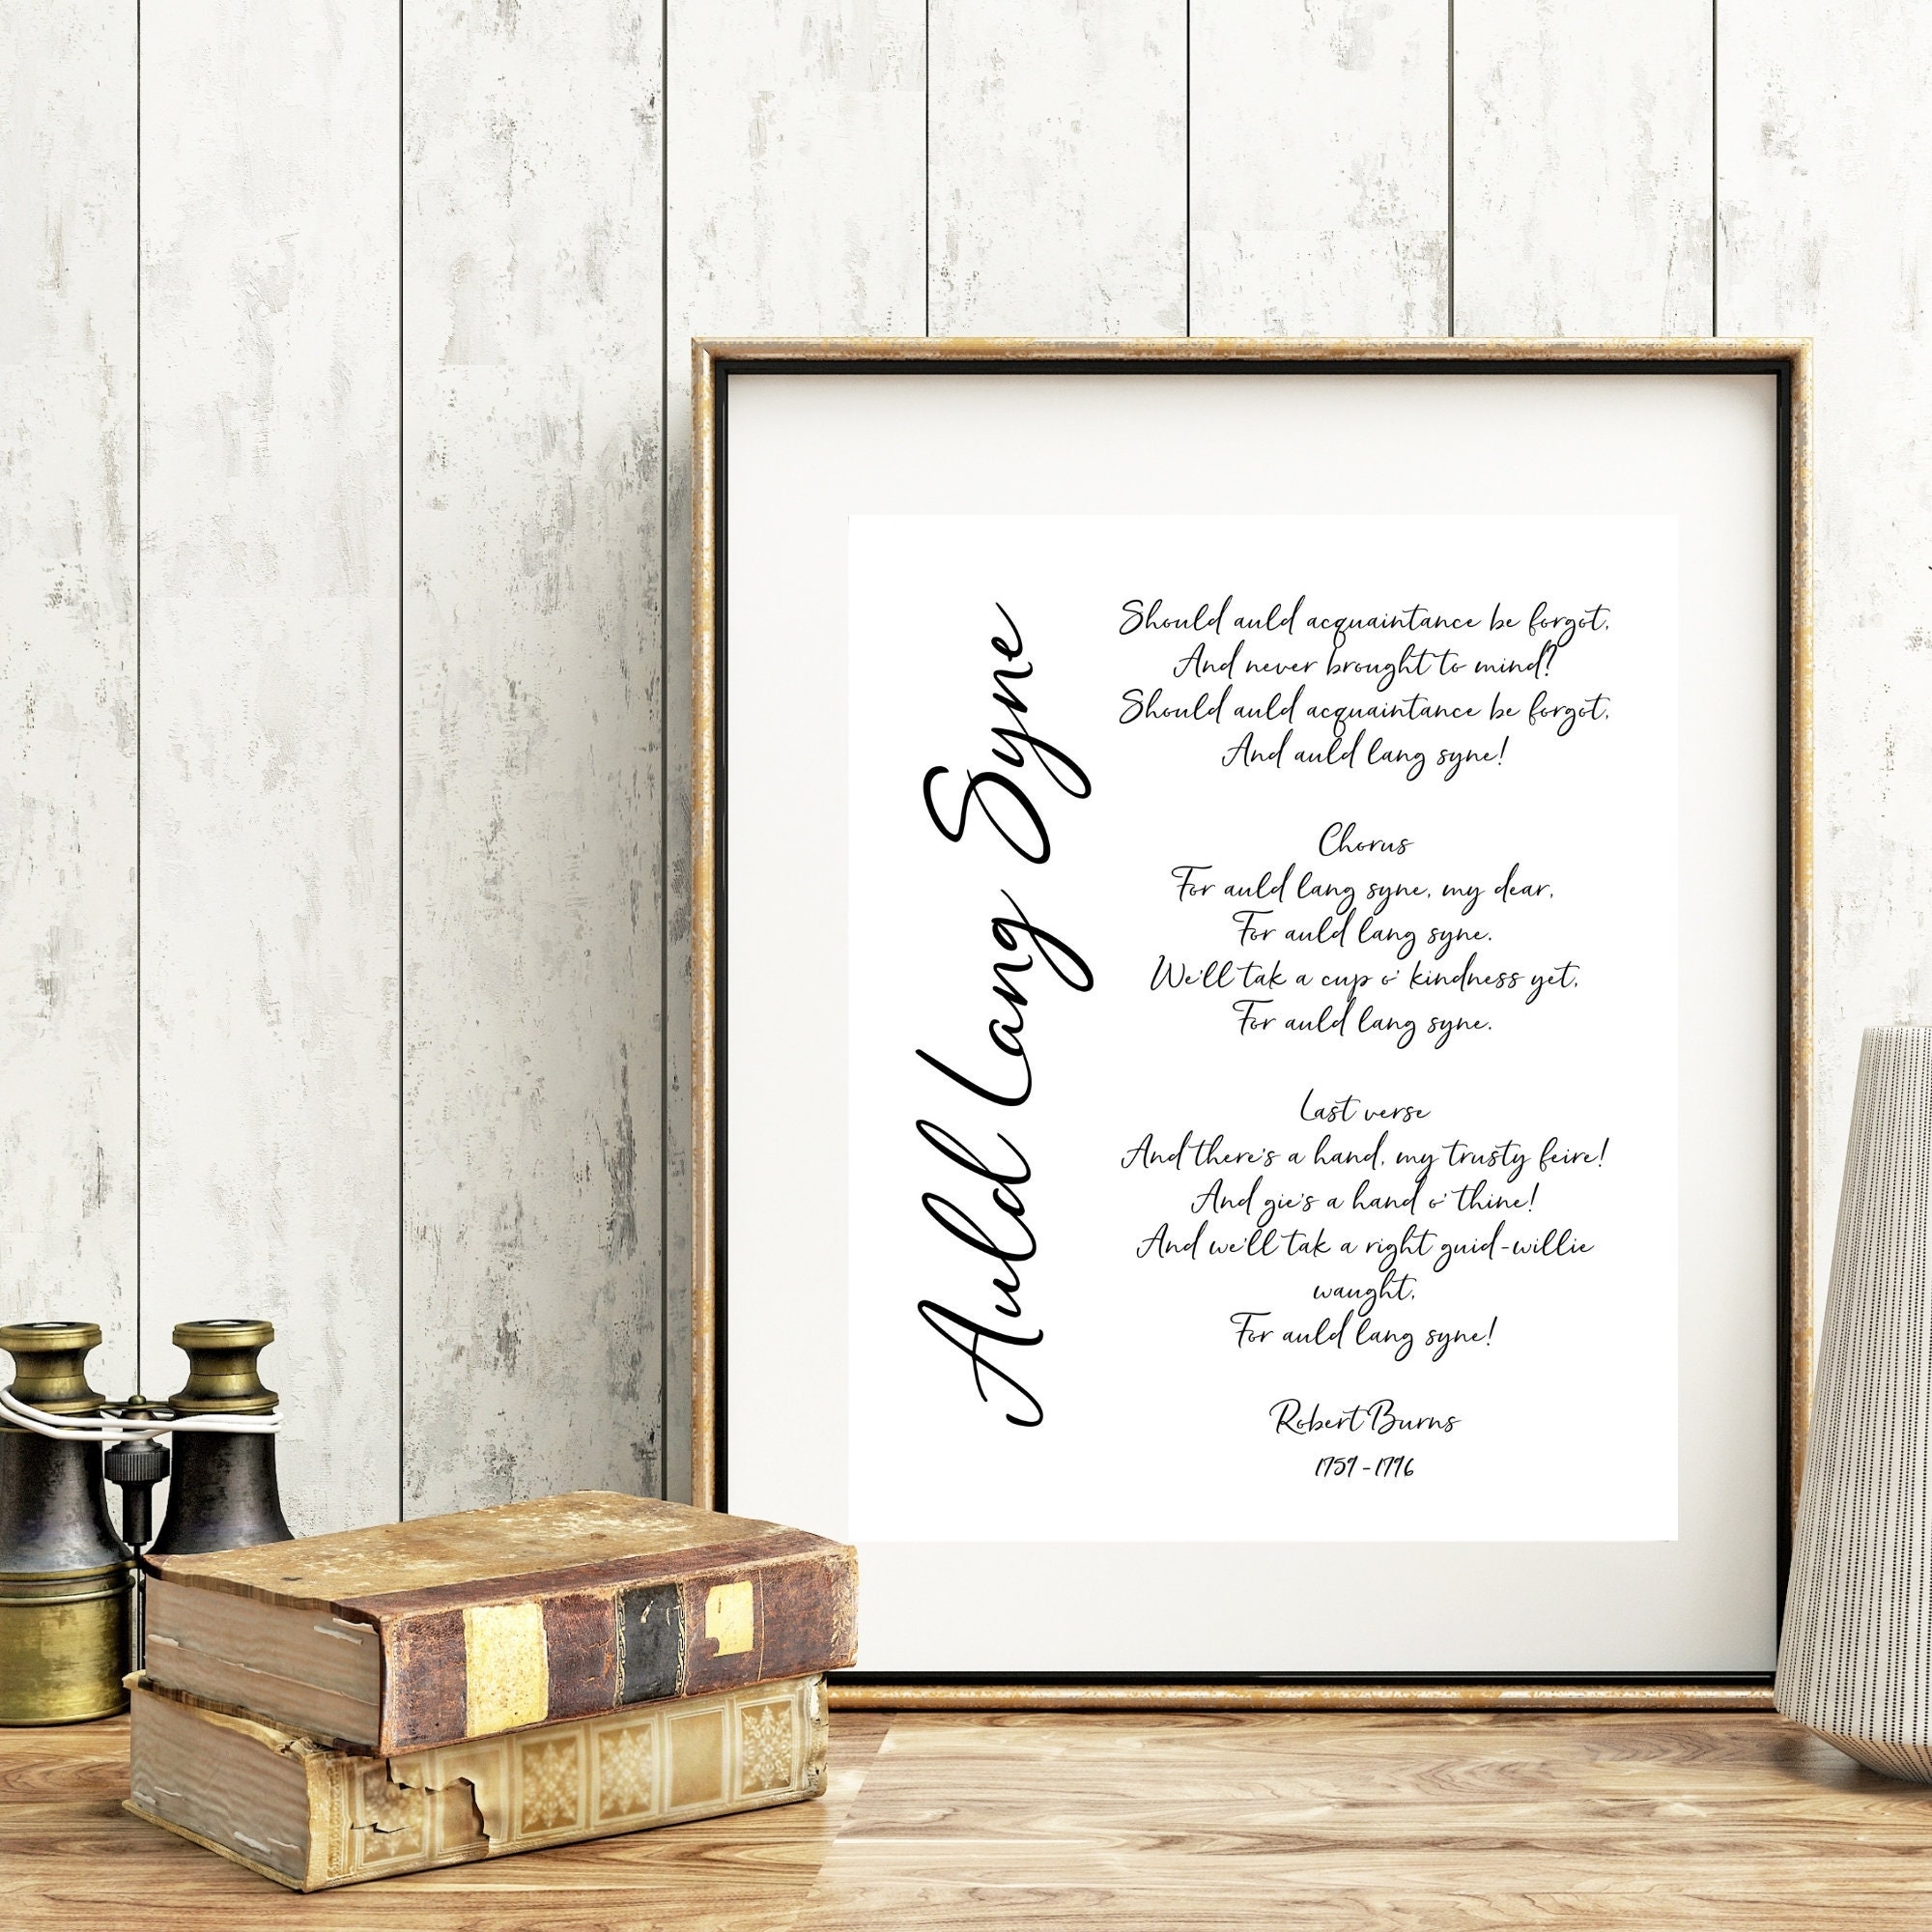 Auld Lang Syne
Should auld acquaintance be forgot,
And never brought to mind?
Should auld acquaintance be forgot,
And auld lang syne!
Chorus
For auld lang syne, my dear,
For auld lang syne.
We'll tak a cup o' kindness yet,
For auld lang syne.
Last verse
And there's a hand, my trusty feire!
And gie's a hand o' thine!
And we'll tak a right guid-willie
waught,
For auld lang syne!
Robert Burns
1759 - 1796